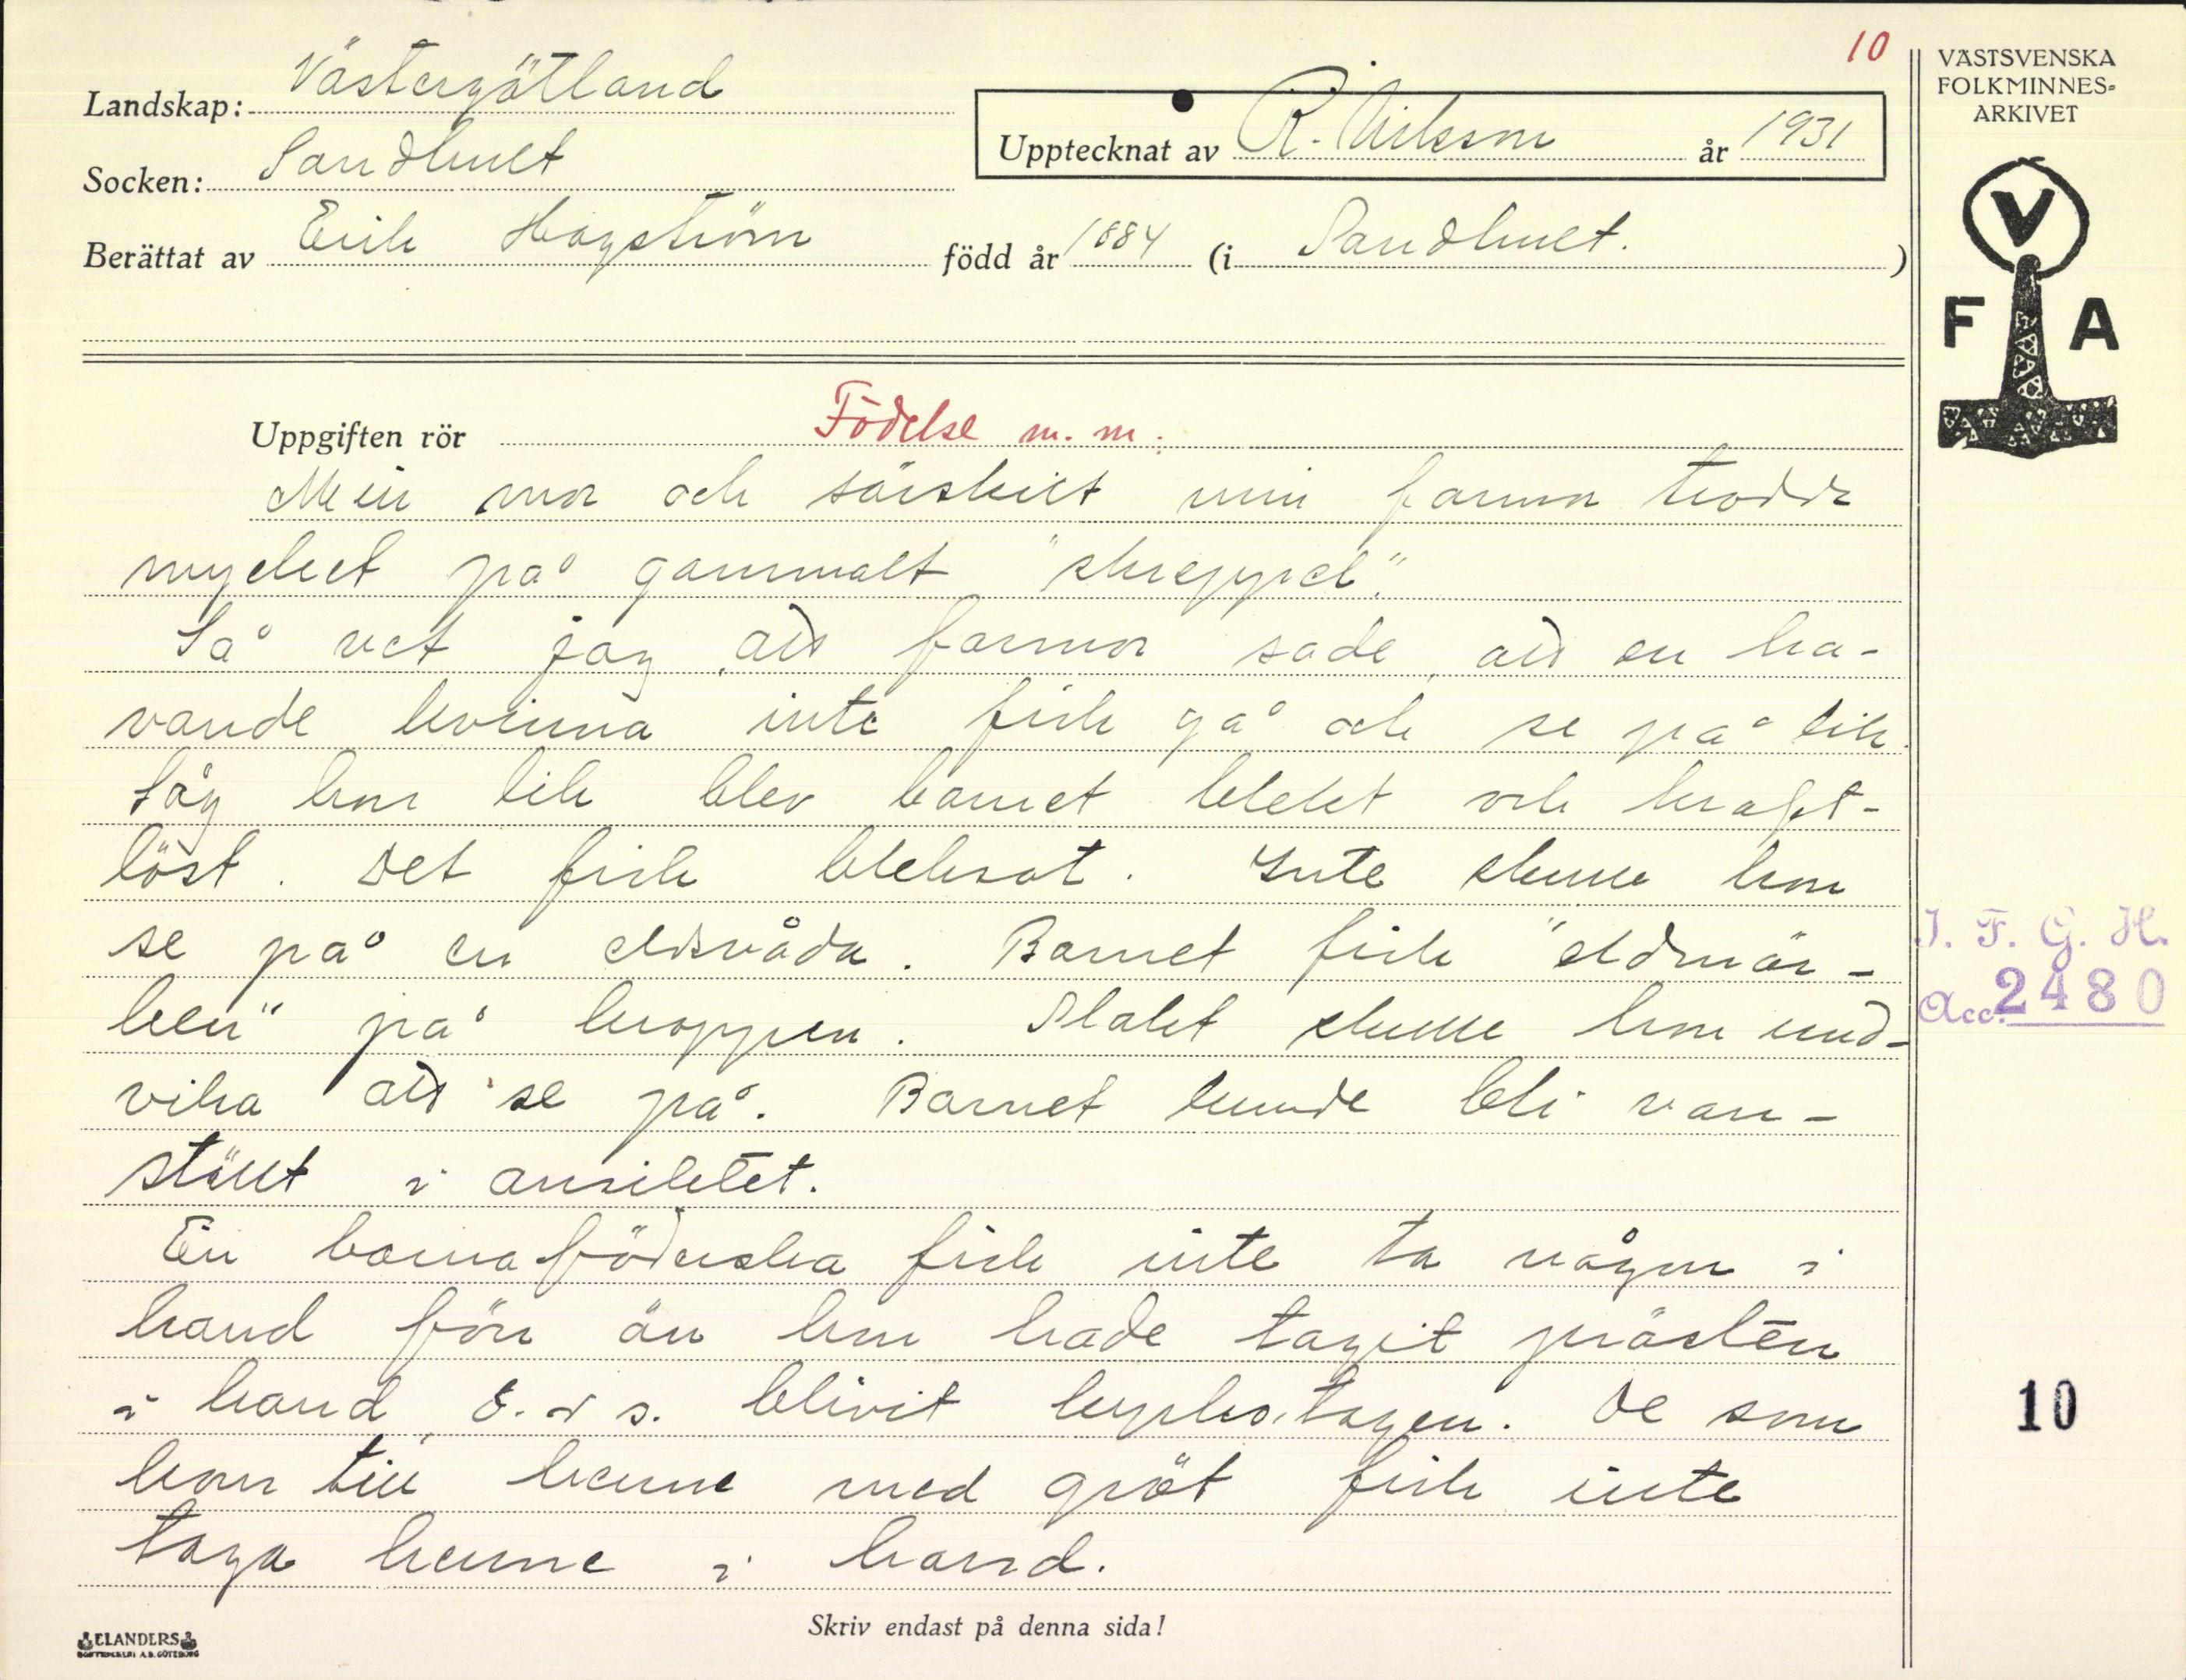 10
VÄSTSVENSKA
FOLKMINNES-
ARKIVET
Landskap: Västergötland
Upptecknat av R. Nilsson år 1931
Socken: Sandhult
Berättat av Erik Hagström född år 1884 (i Sandhult.)
V
F A
Uppgiften rör Födelse m. m.
Min mor och särskilt min farmor trodde
mycket på gammalt "skreppel".
Så vet jag, att farmor sade, att en ha-
vande kvinna inte fick gå och se på lik.
Såg hon lik blev barnet blekt och kraft-
löst. Det fick bleksot. Inte skulle hon
se på en eldsvåda. Barnet fick "eldmär-
ken" på kroppen. Slakt skulle hon und-
vika att se på. Barnet kunde bli van-
ställt i ansiktet.
En barnaföderska fick inte ta någon i
hand förr än hon hade tagit prästen
i hand, d. v s. blivit kyrkotagen. De som
kom till henne med gröt fick inte
taga henne i hand.
I. F. G. H.
Acc. 2480
10
Skriv endast på denna sida!
ELANDERS
BOKTRYCKERI A.B. GÖTEBORG